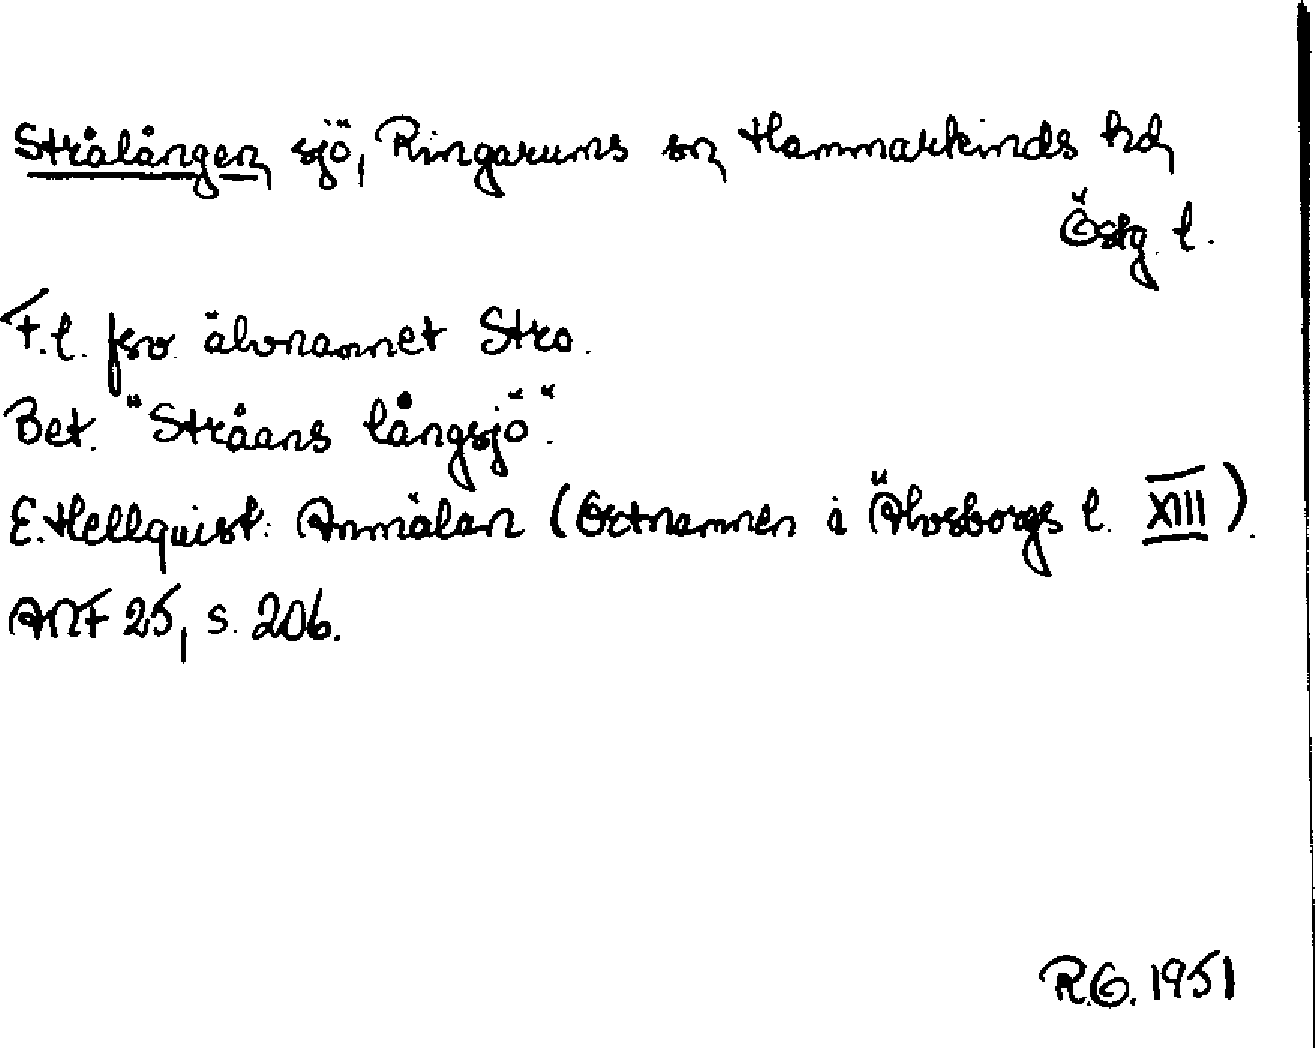 Strålången sjö, Ringarums sn, Hammarkinds hd,
Östg. l.
F.l. fsv. älvnamnet Stro.
Bet. "Ståans långsjö".
E. Hellquist: Anmälan (Ortnamnen i Älvsborgs l. XIII).
ANF 25, s. 206.
R.G. 1951